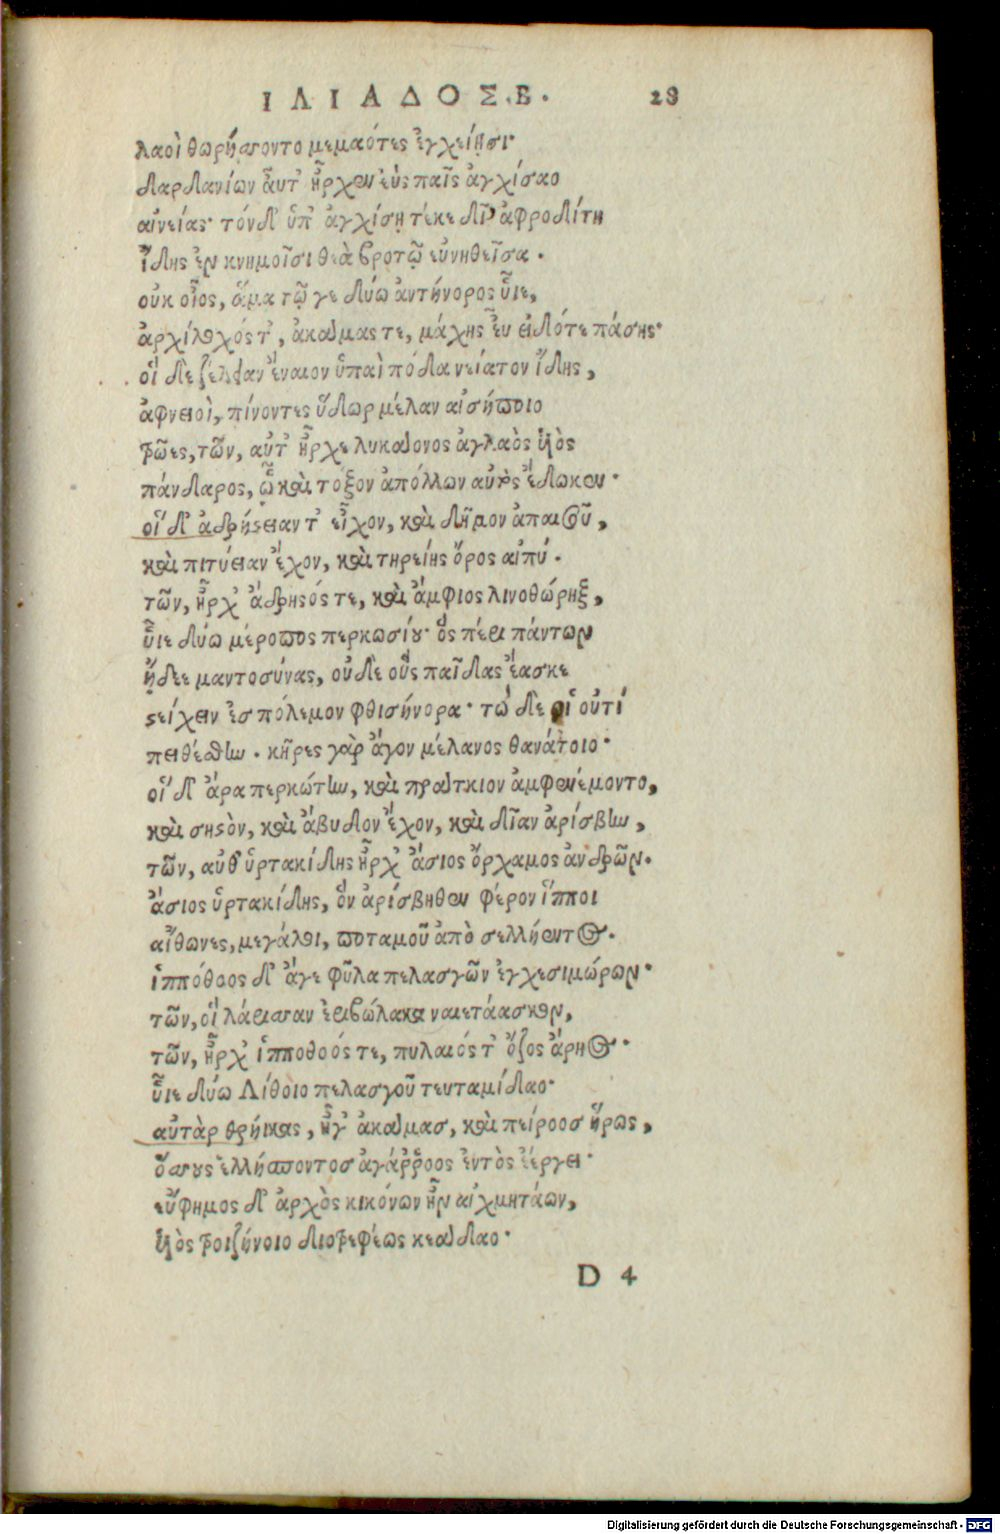 ΙΛΙΑΔΟΣ.Β. 28
λαοὶ θωρήσσοντο μεμαότες ἐγχείῃσι·
δαρδανίων αὖτ' ἦρχεν ἐΰς παῖς ἀγχίσαο
αἰνείας· τόν δ' ὑπ' ἀγχίσῃ τέκε δῖ' ἀφροδίτη
ἴδης ἐν κνημοῖσι θεὰ βροτῷ εὐνηθεῖσα.
οὐκ οἶος, ἅμα τῷ γε δύω ἀντήνορος υἷε,
ἀρχίλοχός τ', ἀκάμας τε, μάχης εὖ εἰδότε πάσης·
οἳ δὲ ζέλειαν ἔναιον ὑπαὶ πόδα νείατον ἴδης,
ἀφνειοὶ, πίνοντες ὕδωρ μέλαν αἰσήποιο
τρῶες, τῶν, αὖτ' ἦρχε λυκάονος ἀγλαὸς υἱὸς
πάνδαρος, ᾧ καὶ τόξον ἀπόλλων αὐτὸς ἔδωκεν·
οἳ δ' ἀδρήστειαν τ' εἶχον, καὶ δῆμον ἀπαισοῦ,
καὶ πιτύειαν ἔχον, καὶ τηρείης ὄρος αἰπύ.
τῶν, ἦρχ' ἄδρηστός τε, καὶ ἄμφιος λινοθώρηξ,
υἷε δύω μέροπος περκωσίου· ὃς πέρι πάντων
ᾔδεε μαντοσύνας, οὐδὲ οὓς παῖδας ἔασκε
στείχειν ἐς πόλεμον φθισήνορα· τὼ δέ οἱ οὔτι
πειθέσθην. κῆρες γὰρ ἄγον μέλανος θανάτοιο·
οἳ δ' ἄρα περκώτην, καὶ πράκτιον ἀμφενέμοντο,
καὶ σηστὸν, καὶ ἄβυδον ἔχον, καὶ δῖαν ἀρίσβην,
τῶν, αὖθ' ὑρτακίδης ἦρχ' ἄσιος ὄρχαμος ἀνδρῶν.
ἄσιος ὑρτακίδης, ὃν ἀρίσβηθεν φέρον ἵπποι
αἴθωνες, μεγάλοι, ποταμοῦ ἀπὸ σελλήεντος.
ἱππόθοος δ' ἄγε φῦλα πελασγῶν ἐγχεσιμώρων·
τῶν, οἳ λάρισσαν ἐριβώλακα ναιετάασκον,
τῶν, ἦρχ' ἱπποθοός τε, πυλαιός τ' ὄζος ἄρηος·
υἷε δύω λίθοιο πελασγοῦ τευταμίδαο·
αὐτὰρ θρήικας, ἦγ' ἀκάμας, καὶ πείροος ἥρως,
ὅσσους ἑλλήσποντος ἀγάῤῥοος ἐντὸς ἐέργει·
εὔφημος δ' ἀρχὸς κικόνων ἦν αἰχμητάων,
υἱὸς τροιζήνοιο διοτρεφέως κεάδαο·
D 4
Digitalisierung gefördert durch die Deutsche Forschungsgemeinschaft - DFG